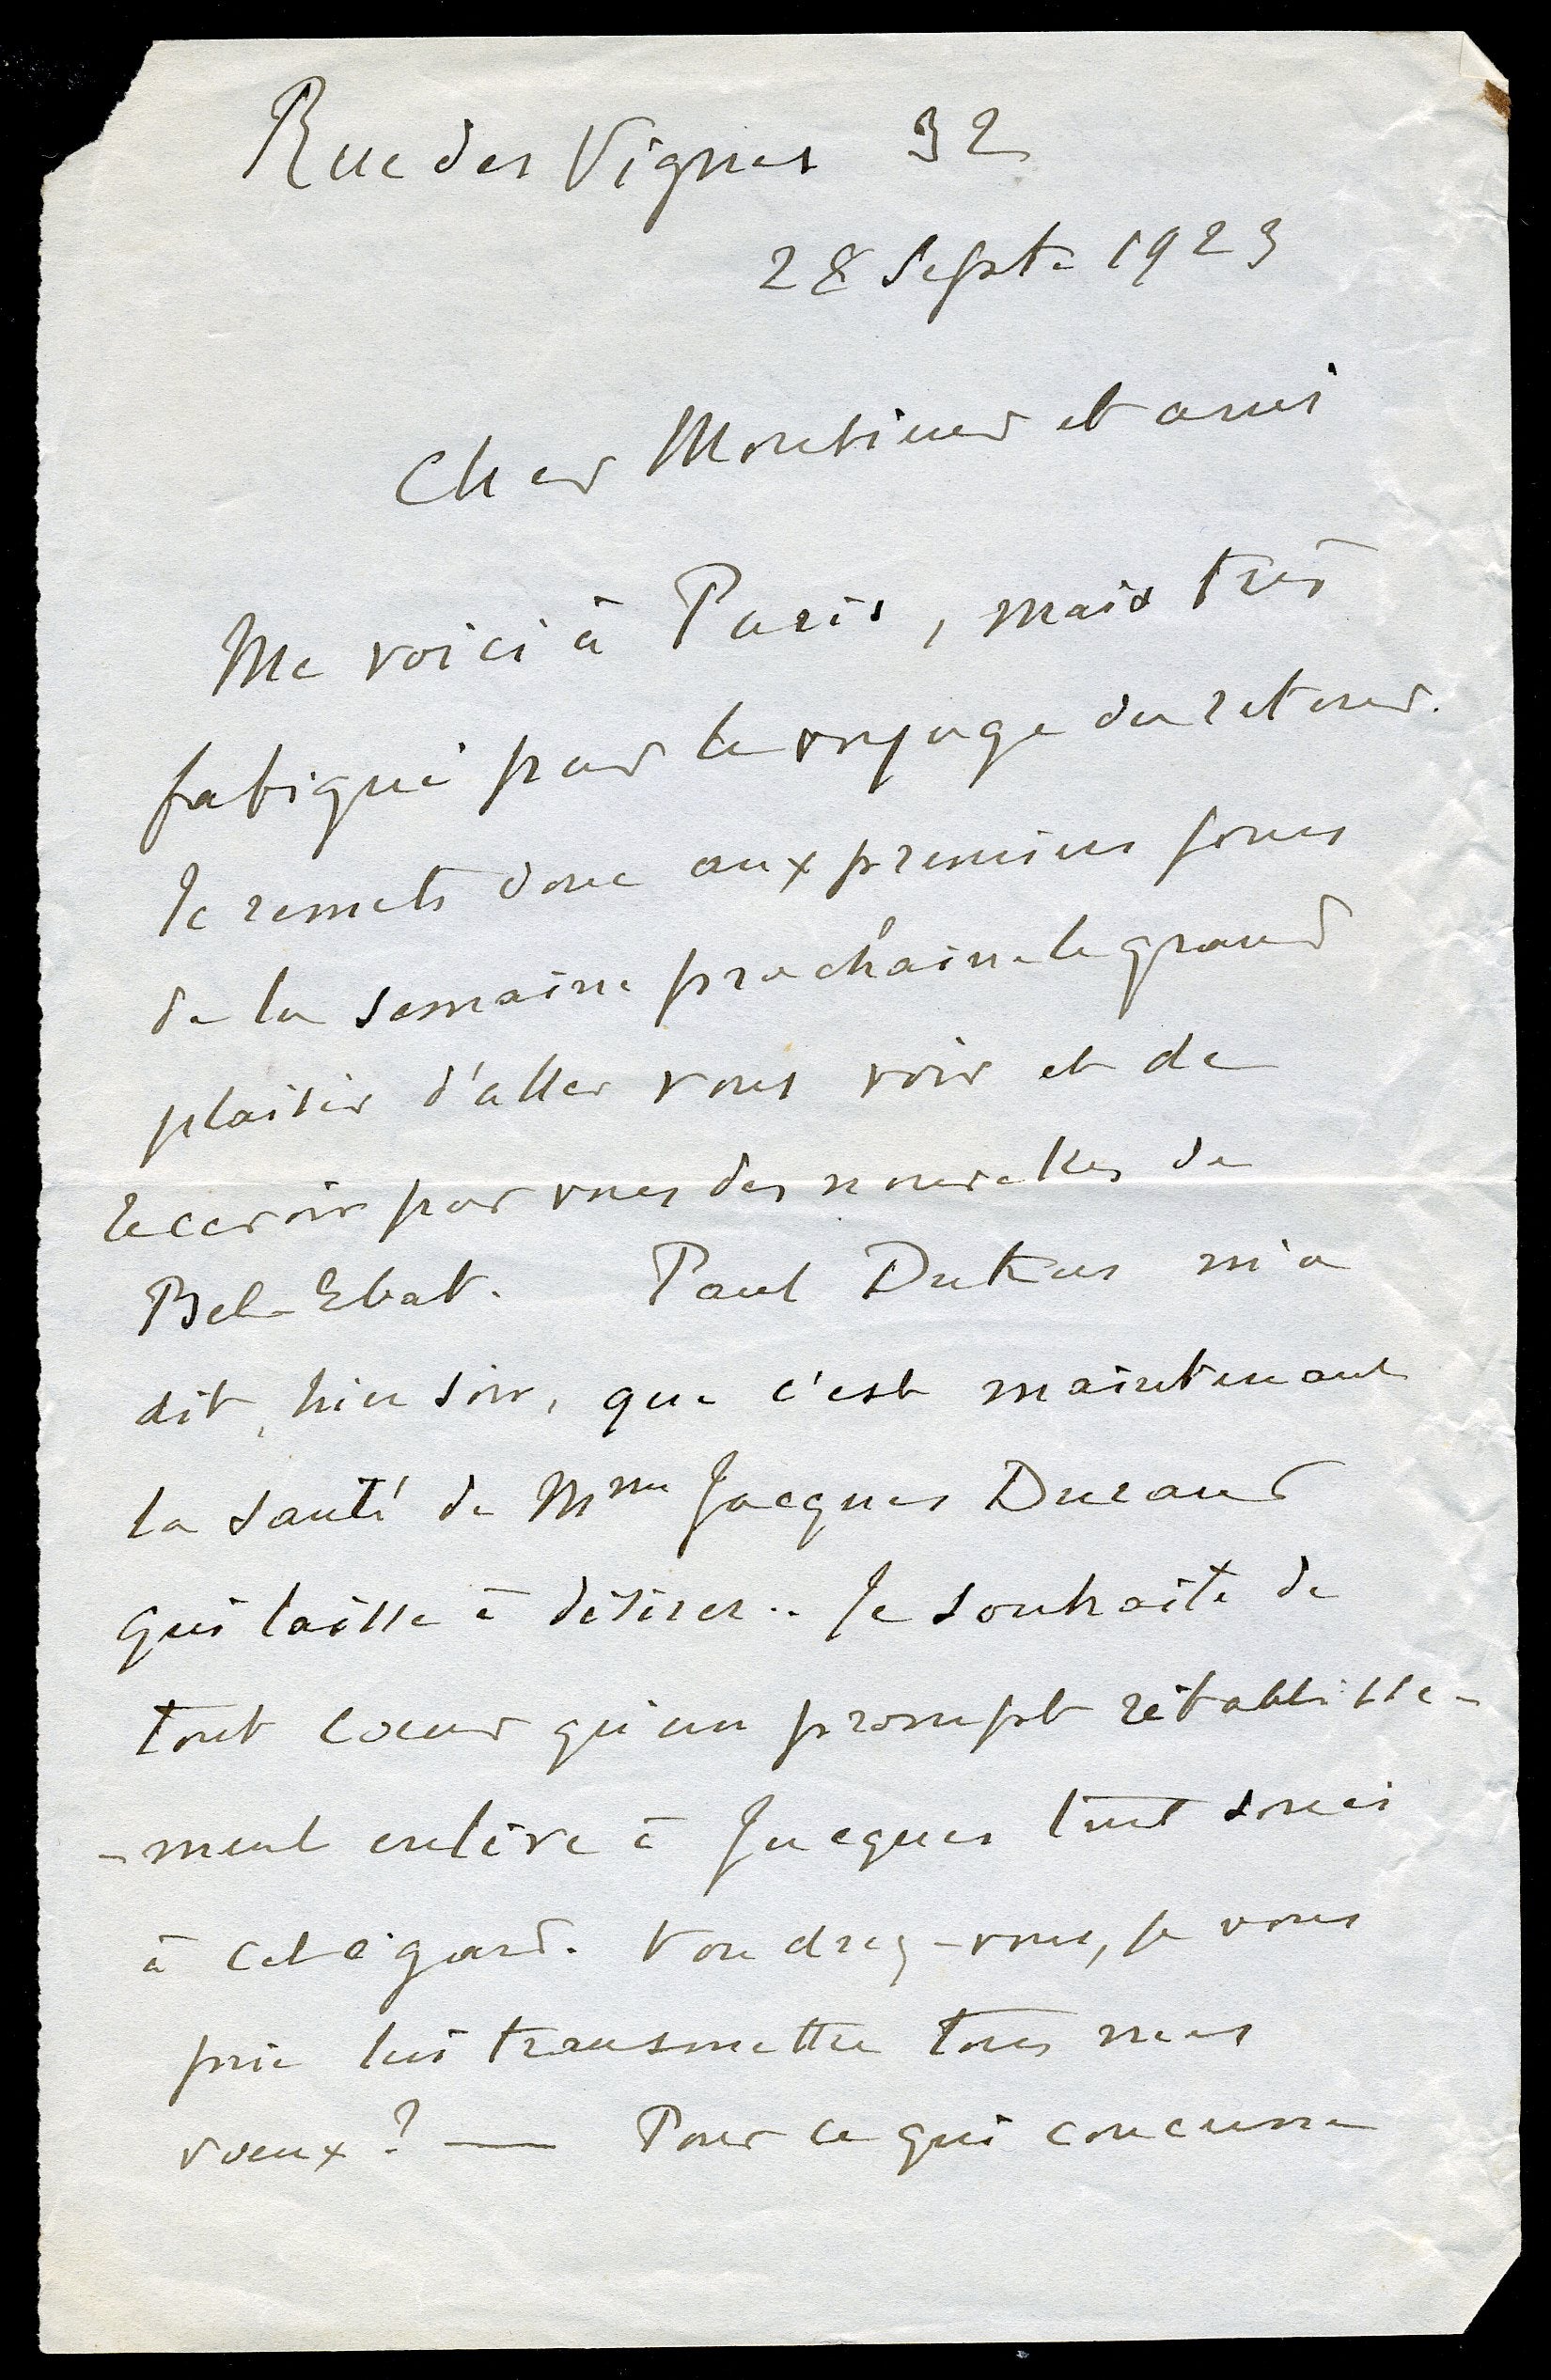 Rue des Vignes 32
28 Septe 1923
Cher Monsieur et ami
Me voici à Paris, mais très
fatigué par le voyage du retour.
Je remets donc aux premiers jours
de la semaine prochaine le grand
plaisir d'aller vous voir et de
recevoir par vous des nouvelles de
Bel-Ebat. Paul Dukas m'a
dit, hier soir, que c'est maintenant
la santé de Mme Jacques Durand
qui laisse à désirer.. Je souhaite de
tout cœur qu'un prompt rétablisse-
-ment enlève à Jacques tout souci
à cet égard. Voudrez-vous, je vous
prie lui transmettre tous mes
vœux? — Pour ce qui concerne